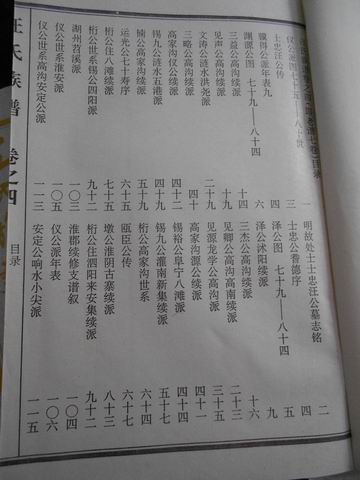 汪氏族谱 卷之四 目录
仪公派图七十五——八十世 一
明故处士士忠汪公墓志铭 二
士忠汪公传 三
士忠公耆德序 四
泽公图 七十九——八十四 五
渊源公图 七十九——八十四 六
泽公沭阳续派 九
三益公高沟续派 十四
三杰公高沟续派 十六
见声公高沟续派
见卿公高沟高南续派 二十三
文涛公涟水洪尧派 二十九
见源龙学公高沟派 三十五
三略公高沟续派
高家沟源公续派 四十一
高家沟仪公续派 四十二
锡裕公阜宁八滩派 四十四
锡九公涟水五港派
锡九公灌南新集续派 五十七
楠公高家沟续派 五十九
桁公高家沟世系 六十四
运光公七十寿序 六十五
瓯臣公传 六十七
桁公住八滩续派 七十七
墩公淮阴古寨续派 八十三
桁公世系锡公四阳派 九十二
桁公住泗阳来安集续派 九十二
湖州苕溪派 一〇三
淮郡续修支谱叙 一〇四
仪公世系淮安派 一〇五
仪公派年表 一〇六
仪公世系高沟安定公派 一一三
安定公响水小尖派 一一五